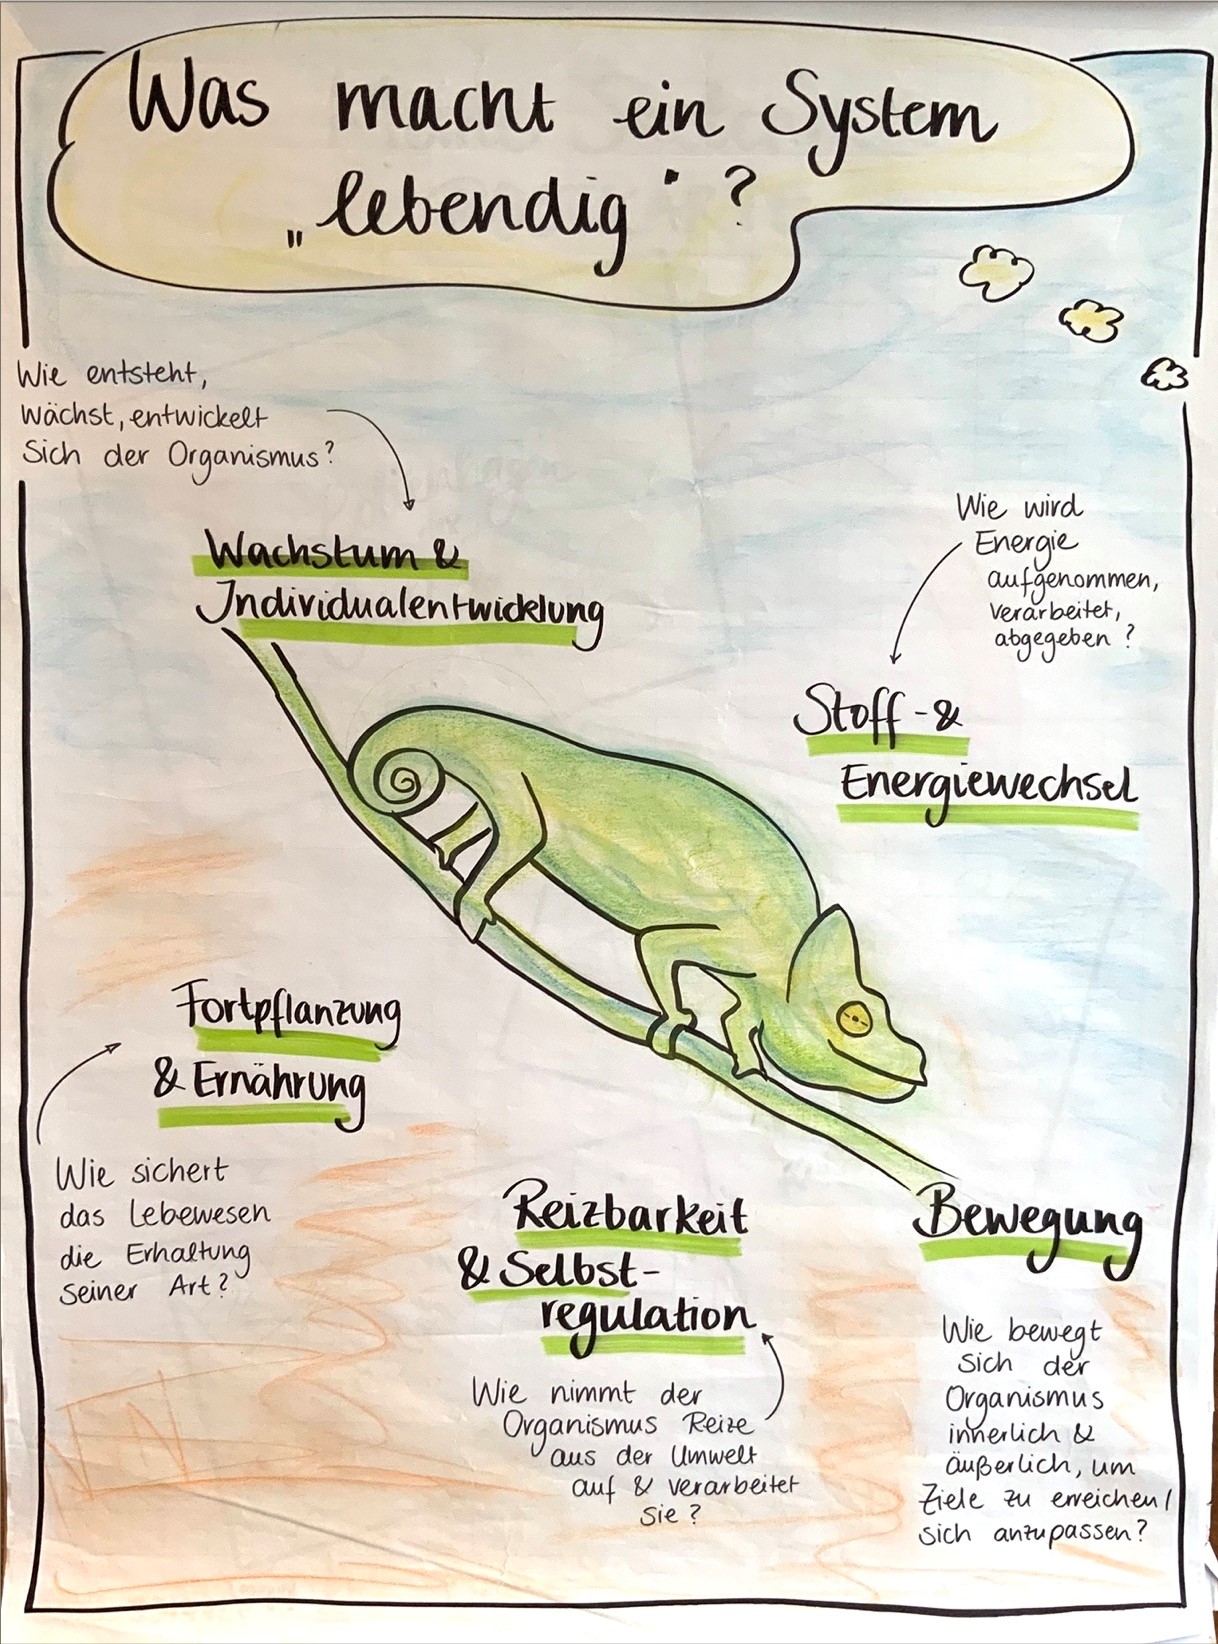 Was macht ein System
„lebendig" ?
Wie entsteht,
wächst, entwickelt
sich der Organismus?
Wachstum &
Individualentwicklung
Wie wird
Energie
aufgenommen,
verarbeitet,
abgegeben?
Stoff- &
Energiewechsel
Fortpflanzung
& Ernährung
Wie sichert
das Lebewesen
die Erhaltung
seiner Art?
Reizbarkeit
& Selbst-
regulation
Wie nimmt der
Organismus Reize
aus der Umwelt
auf & verarbeitet
sie?
Bewegung
Wie bewegt
sich der
Organismus
innerlich &
äußerlich, um
Ziele zu erreichen/
sich anzupassen?